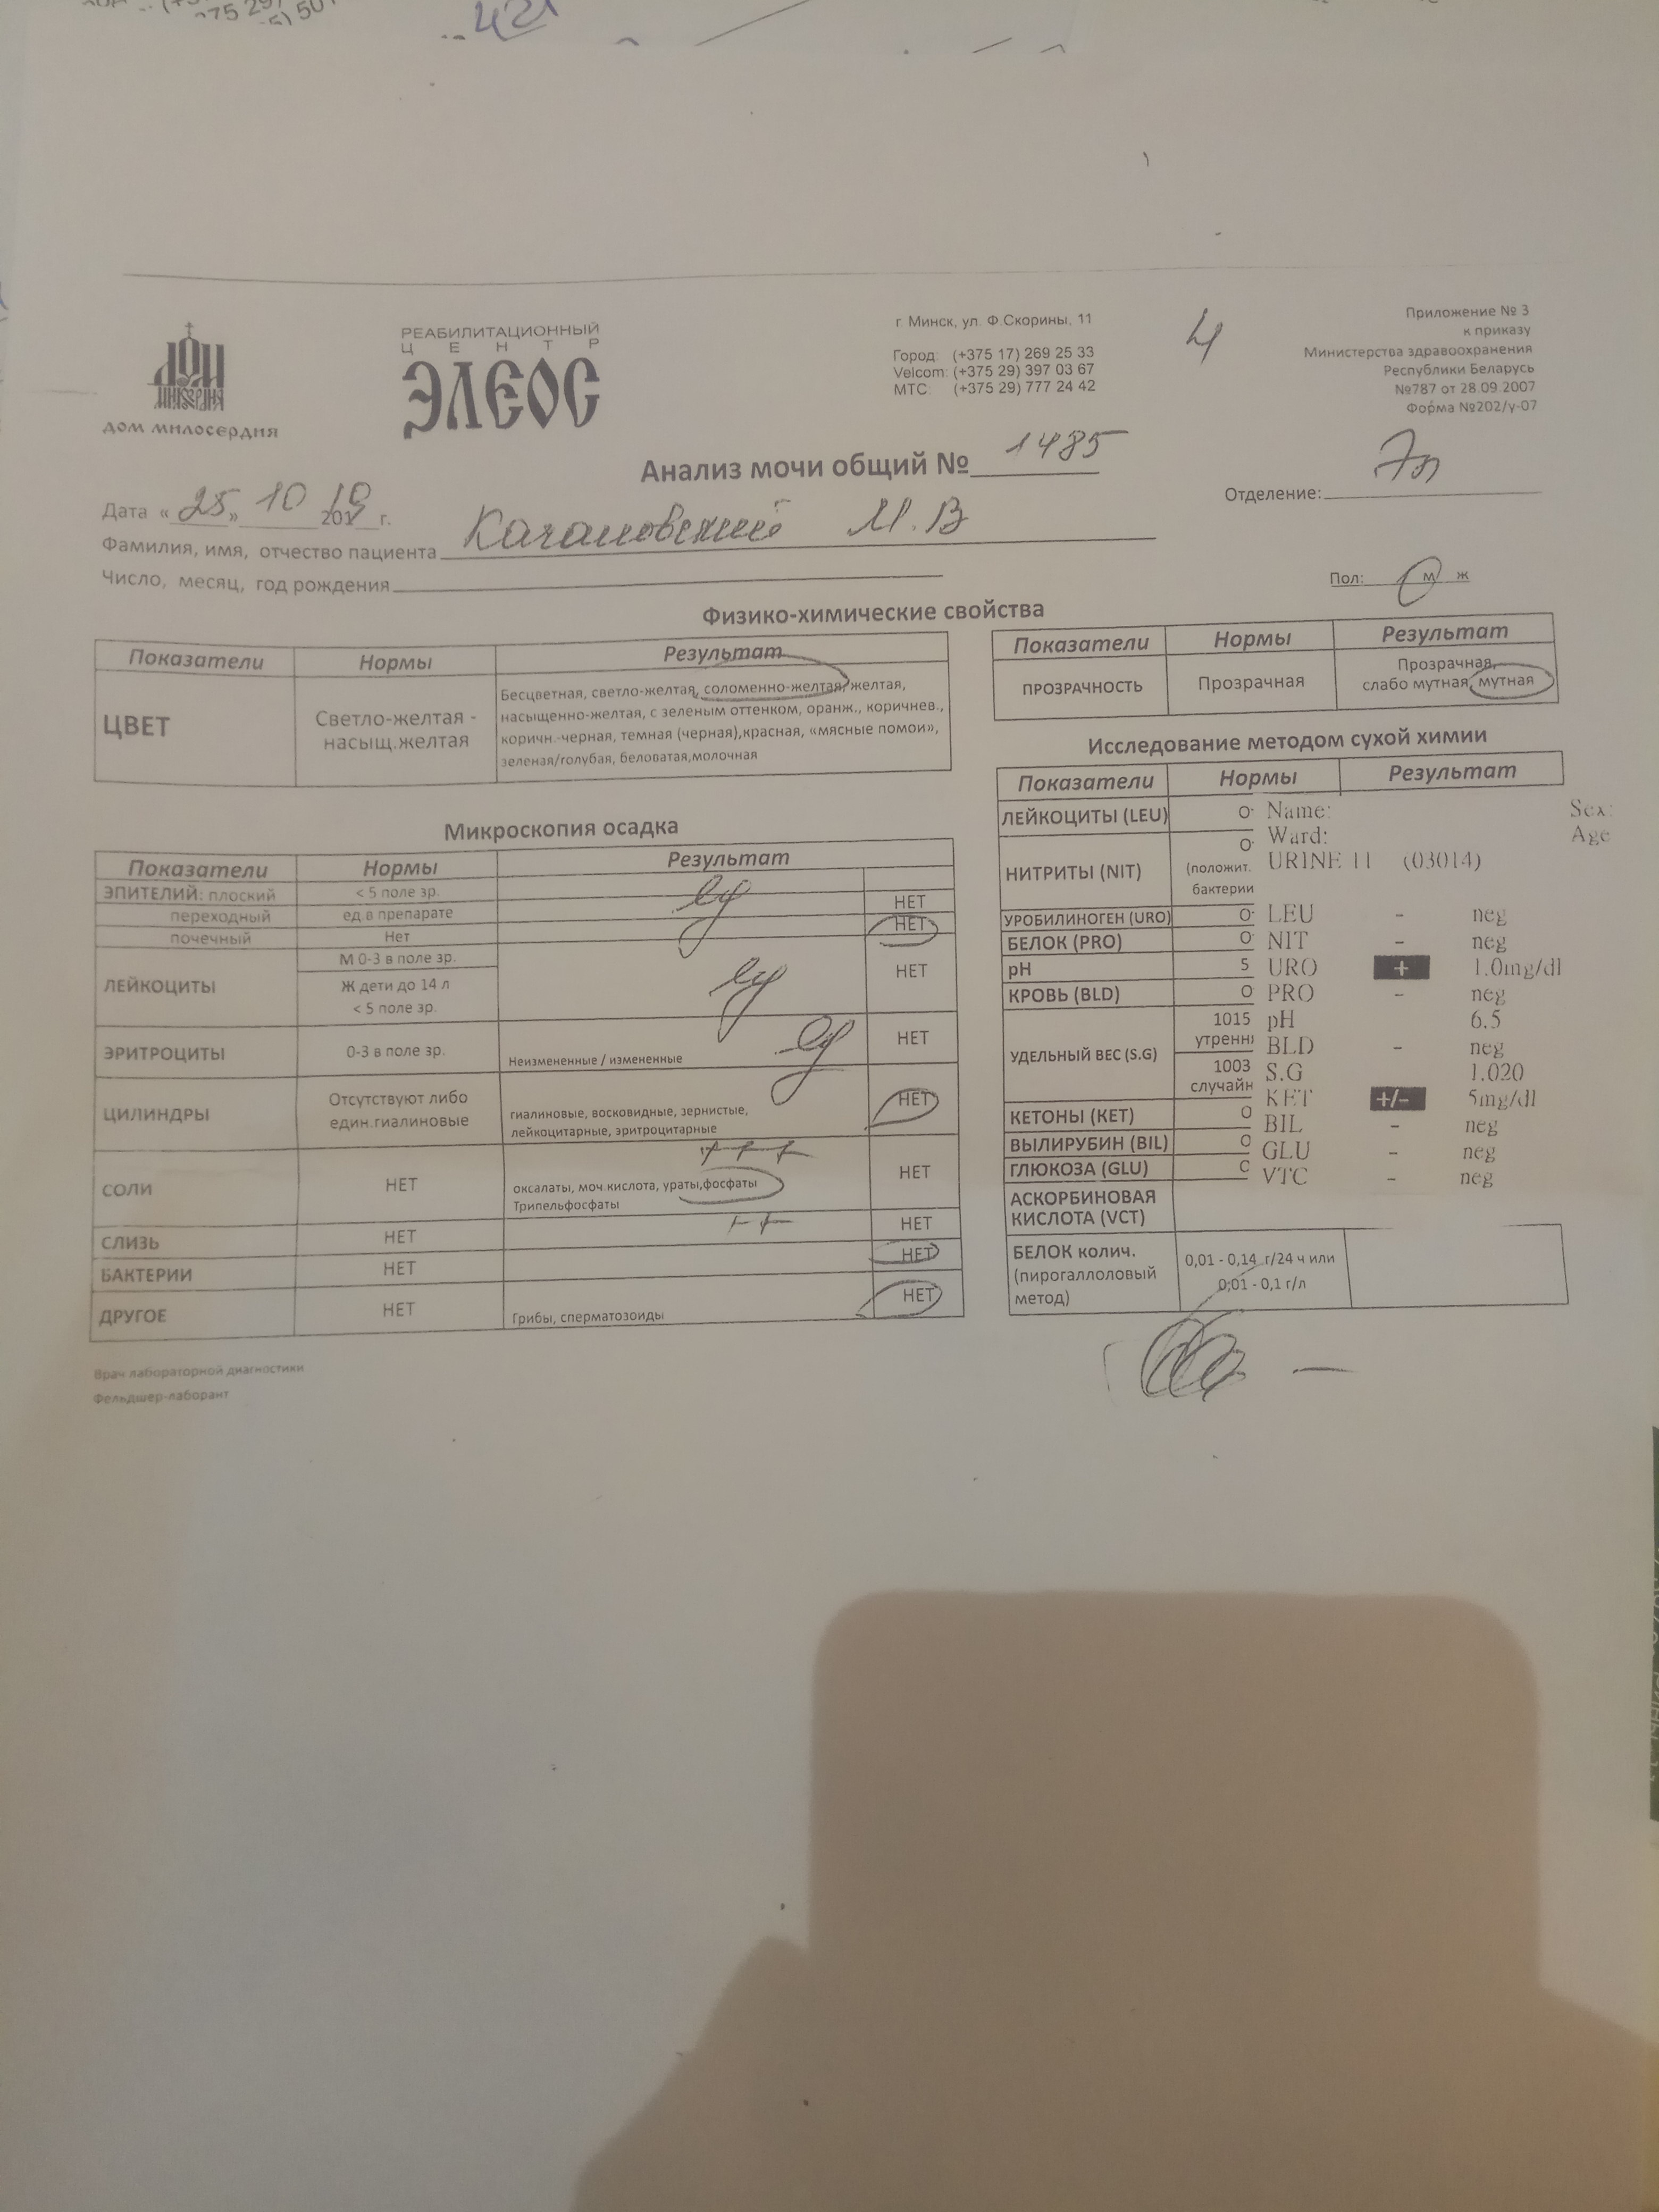 421
ДОМ МИЛОСЕРДИЯ
РЕАБИЛИТАЦИОННЫЙ
ЦЕНТР
ЭЛЕОС
г Минск, ул. Ф.Скорины, 11
Город: (+375 17) 269 25 33
Velcom: (+375 29) 397 03 67
МТС: (+375 29) 777 24 42
4
Приложение № 3
к приказу
Министерства здравоохранения
Республики Беларусь
№787 от 28.09.2007
Форма №202/у-07
Анализ мочи общий № 1485
Дата «25» 10 2019 г.
Отделение: 7п
Фамилия, имя, отчество пациента Качановский М.В
Число, месяц, год рождения
Пол: м ж
Физико-химические свойства
Показатели Нормы Результат
ЦВЕТ Светло-желтая - насыщ.желтая
Бесцветная, светло-желтая, соломенно-желтая, желтая,
насыщенно-желтая, с зеленым оттенком, оранж., коричнев.,
коричн.-черная, темная (черная),красная, «мясные помои»,
зеленая/голубая, беловатая,молочная
Показатели Нормы Результат
ПРОЗРАЧНОСТЬ Прозрачная
Прозрачная,
слабо мутная, мутная
Микроскопия осадка
Показатели Нормы Результат
ЭПИТЕЛИЙ: плоский < 5 поле зр. ед
переходный ед в препарате НЕТ
почечный Нет НЕТ
ЛЕЙКОЦИТЫ
М 0-3 в поле зр.
Ж дети до 14 л
< 5 поле зр.
ед НЕТ
ЭРИТРОЦИТЫ 0-3 в поле зр. Неизмененные / измененные ед НЕТ
ЦИЛИНДРЫ
Отсутствуют либо
един.гиалиновые
гиалиновые, восковидные, зернистые,
лейкоцитарные, эритроцитарные
НЕТ
СОЛИ НЕТ
+++
оксалаты, моч.кислота, ураты,фосфаты
Трипельфосфаты
НЕТ
СЛИЗЬ НЕТ ++ НЕТ
БАКТЕРИИ НЕТ НЕТ
ДРУГОЕ НЕТ Грибы, сперматозоиды НЕТ
Врач лабораторной диагностики
Фельдшер-лаборант
Исследование методом сухой химии
Показатели Нормы Результат
ЛЕЙКОЦИТЫ (LEU) О
НИТРИТЫ (NIT) О
(положит.
бактерии
УРОБИЛИНОГЕН (URO) О
БЕЛОК (PRO) О
pH 5
КРОВЬ (BLD) О
УДЕЛЬНЫЙ ВЕС (S.G)
1015
утренн
1003
случайн
КЕТОНЫ (KET) О
ВЫЛИРУБИН (BIL) О
ГЛЮКОЗА (GLU) О
АСКОРБИНОВАЯ
КИСЛОТА (VCT)
БЕЛОК колич.
(пирогаллоловый
метод)
0,01 - 0,14 г/24 ч или
0,01 - 0,1 г/л
Name: Sex:
Ward: Age
URINE 11 (03014)
LEU - neg
NIT - neg
URO + 1.0mg/dl
PRO - neg
pH 6.5
BLD - neg
S.G 1.020
KET +/- 5mg/dl
BIL - neg
GLU - neg
VTC - neg